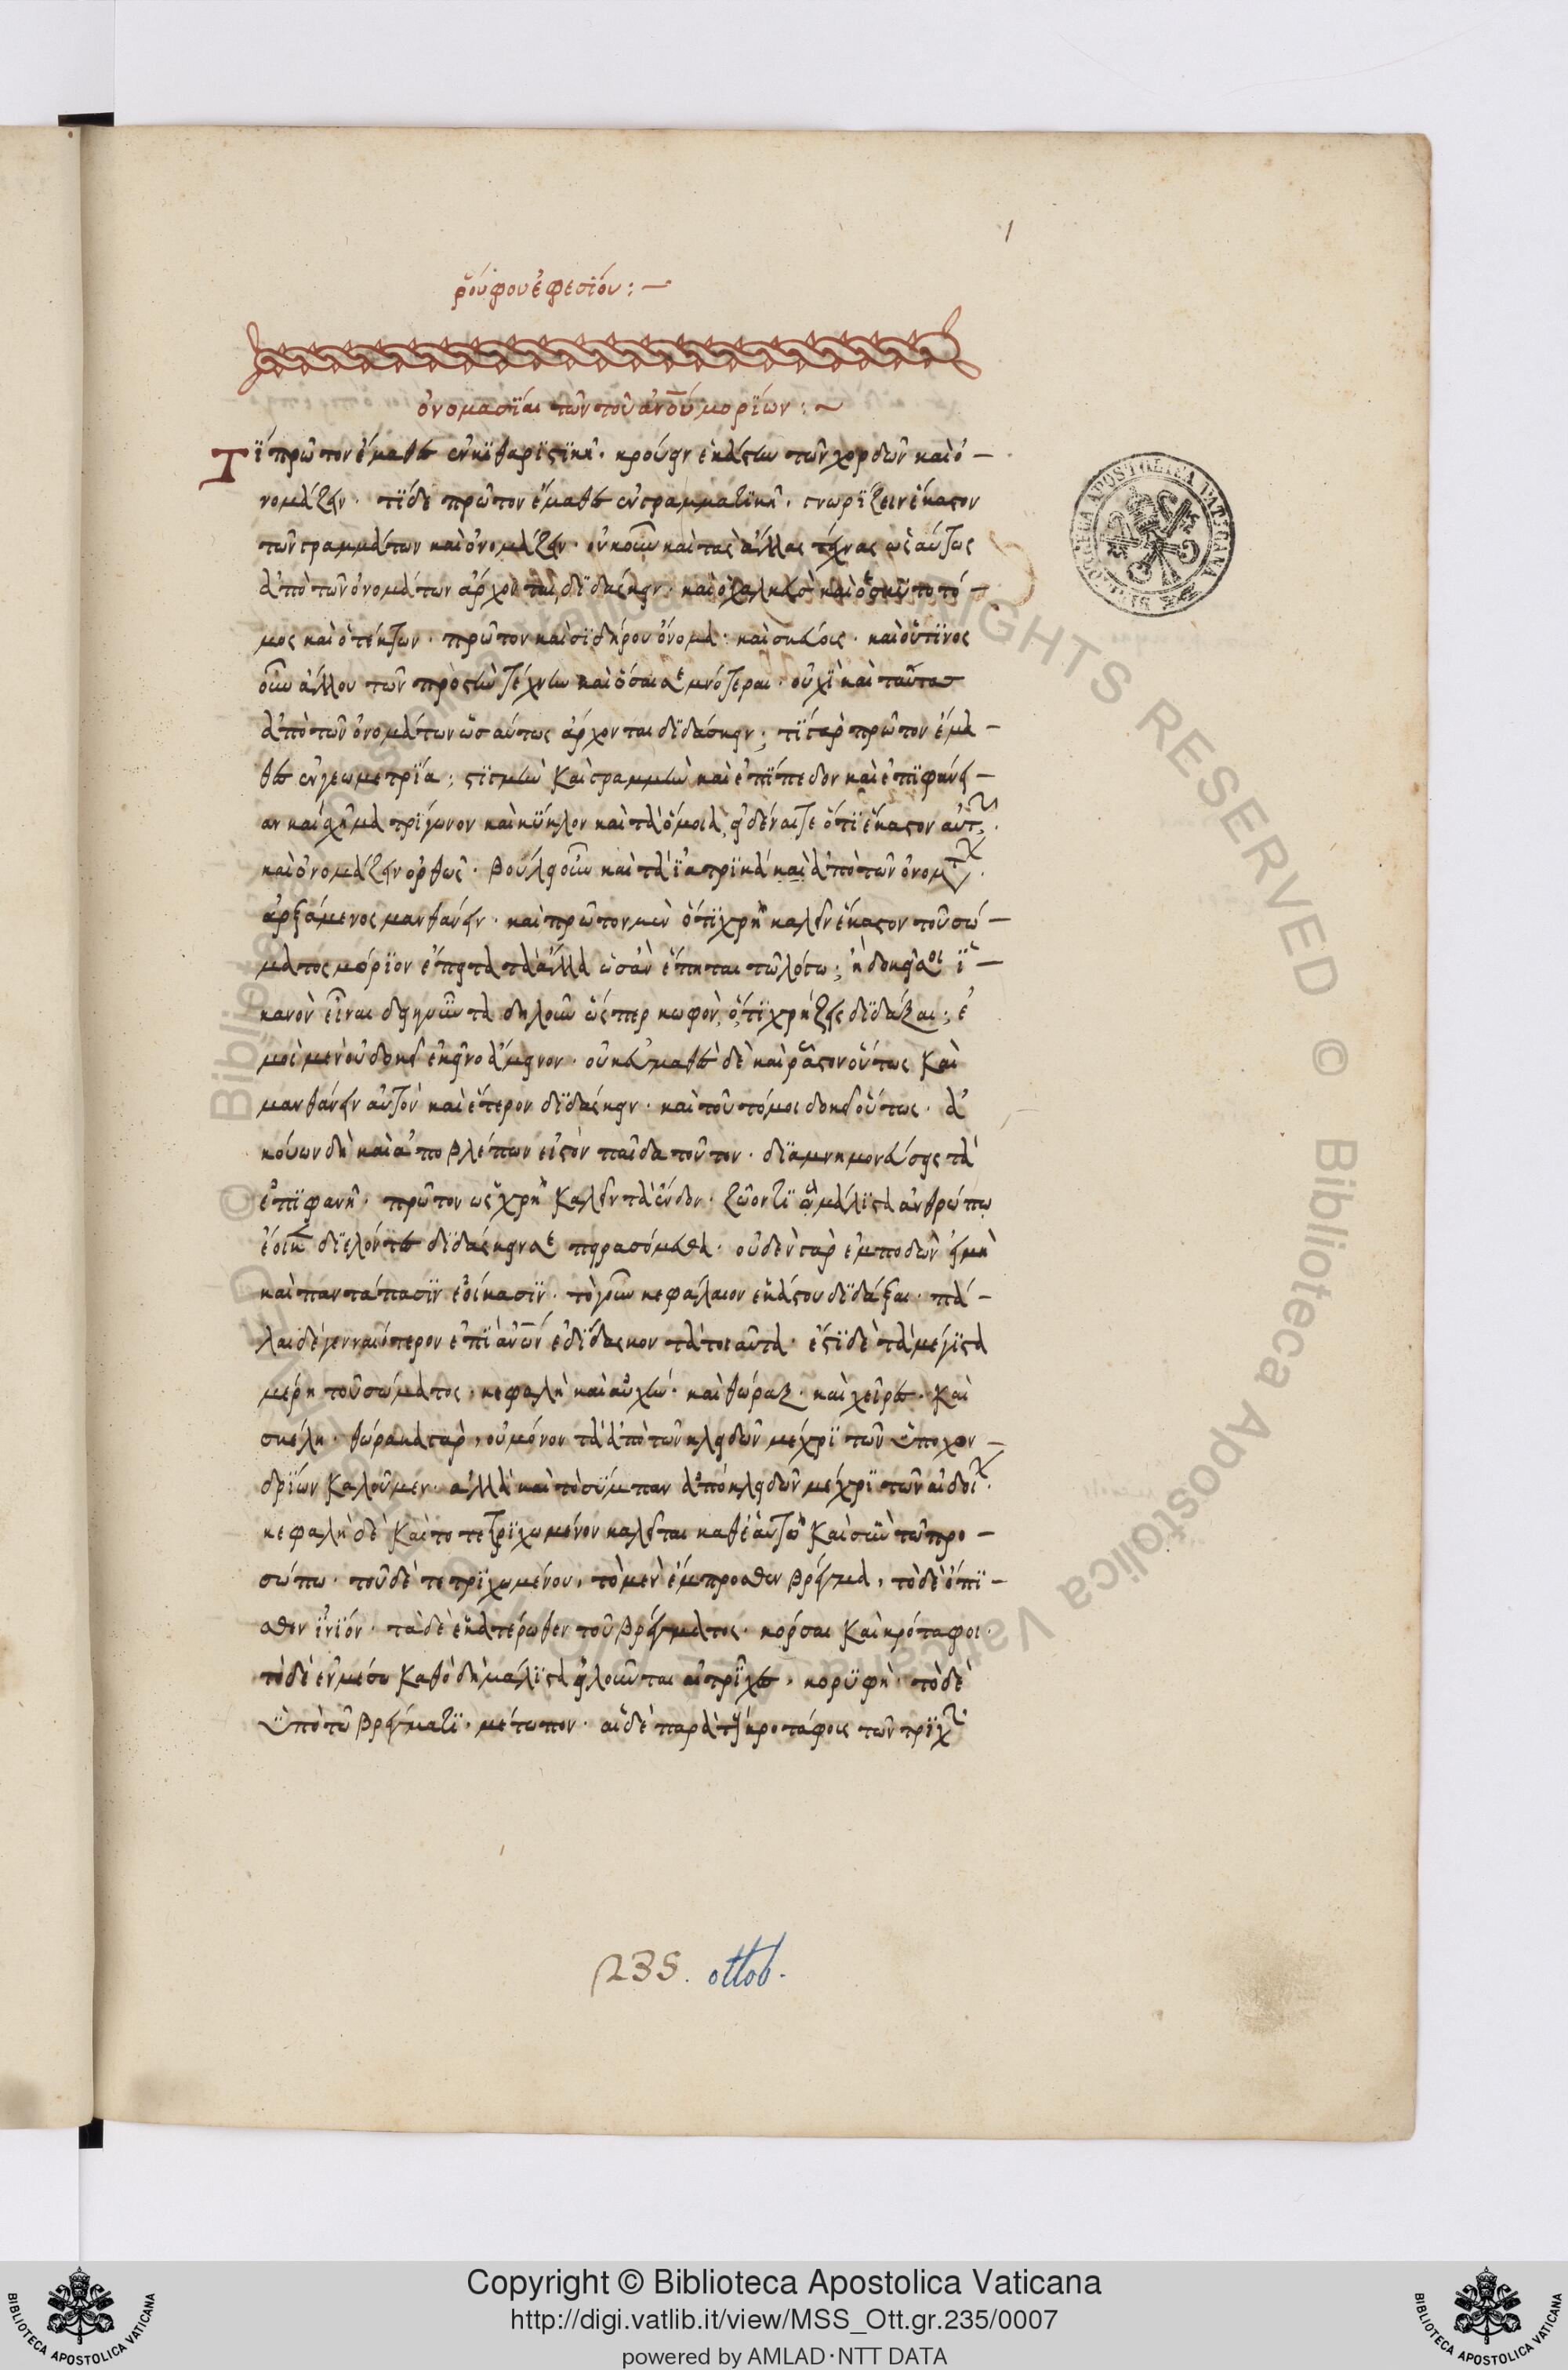 1
ῥούφου ἐφεσίου :—
ὀνομασΐαι τῶν τοῦ ἀνου μορΐων : ~
Τΐ πρῶτον ἔμαθες ἐν κϊθαρϊστϊκῆ · κρούειν ἑκάστην τῶν χορδῶν καὶ ὀ—
νομάζειν · τΐ δὲ πρῶτον ἔμαθες ἐν γραμματϊκῆ · γνωρΐζειν ἕκαστον
τῶν γραμμάτων καὶ ὀνομάζειν · οὐκοῦν καὶ τὰς ἄλλας τέχνας ὡς αύτως
ἀπὸ τῶν ὀνομάτων ἄρχονται διδάσκειν · καὶ ὁ χαλκεὺς καὶ ὁ σκυτοτό—
μος καὶ ὁ τέκτων · πρῶτον καὶ σϊδήρου ὄνομα · καὶ σκεύους · καὶ οὗτϊνος
οὖν ἄλλου τῶν πρὸς τὴν τέχνην καὶ ὅσαι σεμνότεραι · οὐχῒ καὶ ταύτας
ἀπὸ τῶν ὀνομάτων ὡσαύτως ἄρχονται διδάσκειν ; τΐ γὰρ πρῶτον ἔμα—
θες ἐν γεωμετρΐα ; στϊγμὴν καὶ γραμμὴν καὶ ἐπΐπεδον καὶ ἐπϊφάνει—
αν καὶ σχῆμα τρΐγωνον καὶ κύκλον καὶ τὰ ὅμοια, εἰδέναι τε ὅτϊ ἕκαστον αὐτῶν
καὶ ὀνομάζειν ὀρθῶς · βούλει οὖν καὶ τὰ ἰατρϊκὰ καὶ ἀπὸ τῶν ὀνομάτων
ἀρξάμενος μανθάνειν · καὶ πρῶτον μὲν ὅτϊ χρὴ καλεῖν ἕκαστον τοῦ σώ—
ματος μόρϊον ἔπειτα τὰ ἄλλα ὡς ἂν ἕπηται τῶ λόγω ; ἢ δοκεῖ σοι ϊ—
κανὸν εἶναι δεικνύντα δηλοῦν ὥσπερ κωφὸν, ὅτϊ χρήζεις διδάξαι ; ἐ
μοὶ μὲν οὐ δοκεῖ ἐκεῖνο ἄμεινον · οὐκ εὐμαθὲς δὲ καὶ ῥᾷστον οὕτως καὶ
μανθάνειν αὐτὸν καὶ ἕτερον διδάσκειν · καὶ τοῦτό μοι δοκεῖ οὕτως · ἀ
κούων δὴ καὶ ἀποβλέπων εἰς τὸν παῖδα τοῦτον · διαμνημονεύσεις τὰ
ἐπϊφανῆ · πρῶτον ὡς χρὴ καλεῖν τὰ ἔνδον · ζῶον τϊ ὃ μάλϊστα ἀνθρώπω
ἔοικε διελόντες διδάσκειν σε πειρασόμεθα · οὐδὲν γὰρ ἐμποδῶν εἰ μὴ
καὶ παντάπασϊν ἐοίκασϊν · τὸ γοῦν κεφάλαιον ἑκάστου διδάξαι · πά—
λαι δὲ γενναιότερον ἐπὶ ἀνων ἐδΐδασκον τὰ τοιαῦτα · ἔστϊ δὲ τὰ μέγϊστα
μέρη τοῦ σώματος · κεφαλὴ καὶ αὐχὴν · καὶ θώραξ · καὶ χεῖρες · καὶ
σκέλη · θώρακα γὰρ, οὐ μόνον τὰ ἀπὸ τῶν κλειδῶν μέχρϊ τῶν ὑποχον—
δρΐων καλοῦμεν · ἀλλὰ καὶ τὸ σύμπαν ἀπὸ κλειδῶν μέχρϊ τῶν αἰδοίων ·
κεφαλὴ δὲ καὶ τὸ τετρϊχωμένον καλεῖται καθ' ἑαυτὸ καὶ σὺν τῶ προ—
σώπω · τοῦ δὲ τετρϊχωμένου, τὸ μὲν ἔμπροσθεν βρέγμα, τὸ δὲ ὄπϊ—
σθεν ἰνΐον · τὰ δὲ ἑκατέρωθεν τοῦ βρέγματος · κόρσαι καὶ κρόταφοι ·
τὸ δὲ ἐν μέσω καθὸ δὴ μάλϊστα εἰλοῦνται αἱ τρΐχες · κορυφὴ · τὸ δὲ
ὑπὸ τῶ βρέγματϊ · μέτωπον · αἱ δὲ παρὰ τοῖς κροτάφοις τῶν τρϊχῶν
235. ottob.
BIBLIOTECA APOSTOLICA VATICANA
© Biblioteca Apostolica Vaticana ALL RIGHTS RESERVED
Copyright © Biblioteca Apostolica Vaticana
http://digi.vatlib.it/view/MSS_Ott.gr.235/0007
powered by AMLAD·NTT DATA
BIBLIOTECA APOSTOLICA VATICANA
BIBLIOTECA APOSTOLICA VATICANA